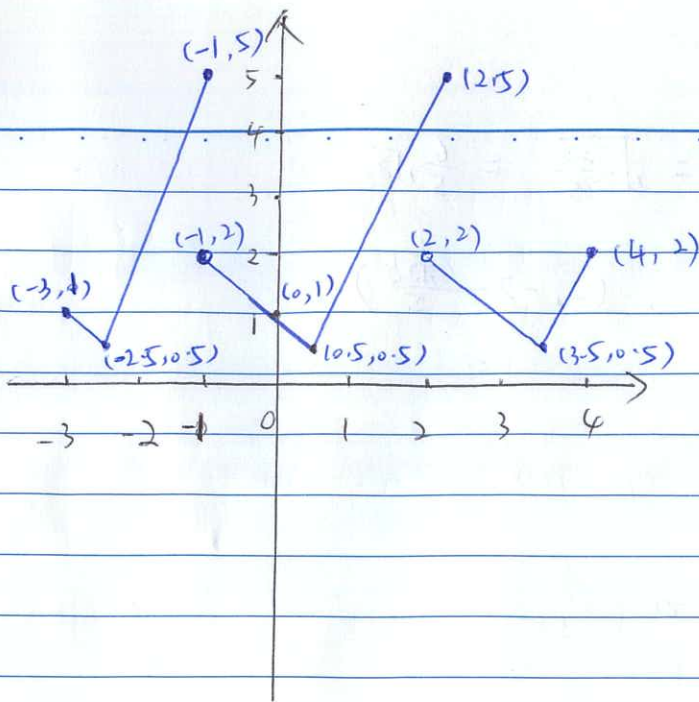 (-1,5)
5
(2,5)
4
3
(-1,2)
2
(2,2)
(4, 2)
(-3,1)
(0,1)
1
(-2.5,0.5)
(0.5,0.5)
(3.5,0.5)
-3 -2 -1 0 1 2 3 4